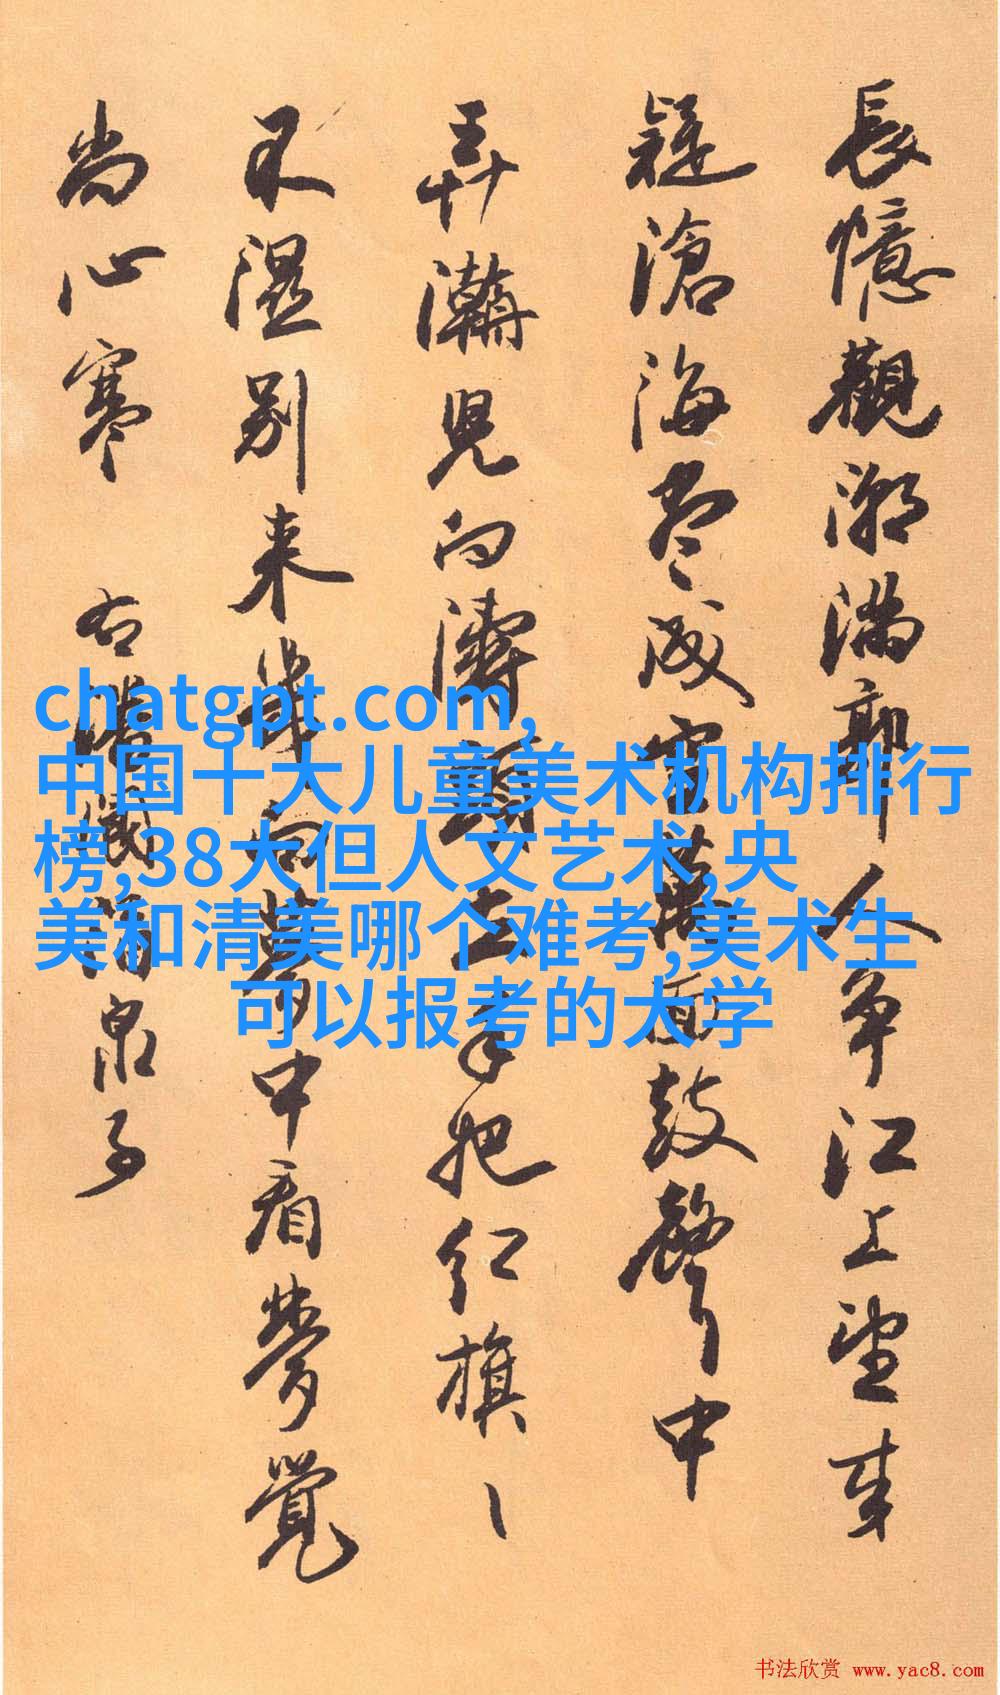 長憶觀潮滿郭人爭江上望来
疑滄海盡成空萬面鼓聲中
弄潮児向濤頭立手把红旗ヽ
不濕别来幾向夢中看夢覺
尚心寒 右潘閬酒泉子
chatgpt.com,
中国十大儿童美术机构排行
榜,38大但人文艺术,央
美和清美哪个难考,美术生
可以报考的大学
书法欣赏 www.yac8.com